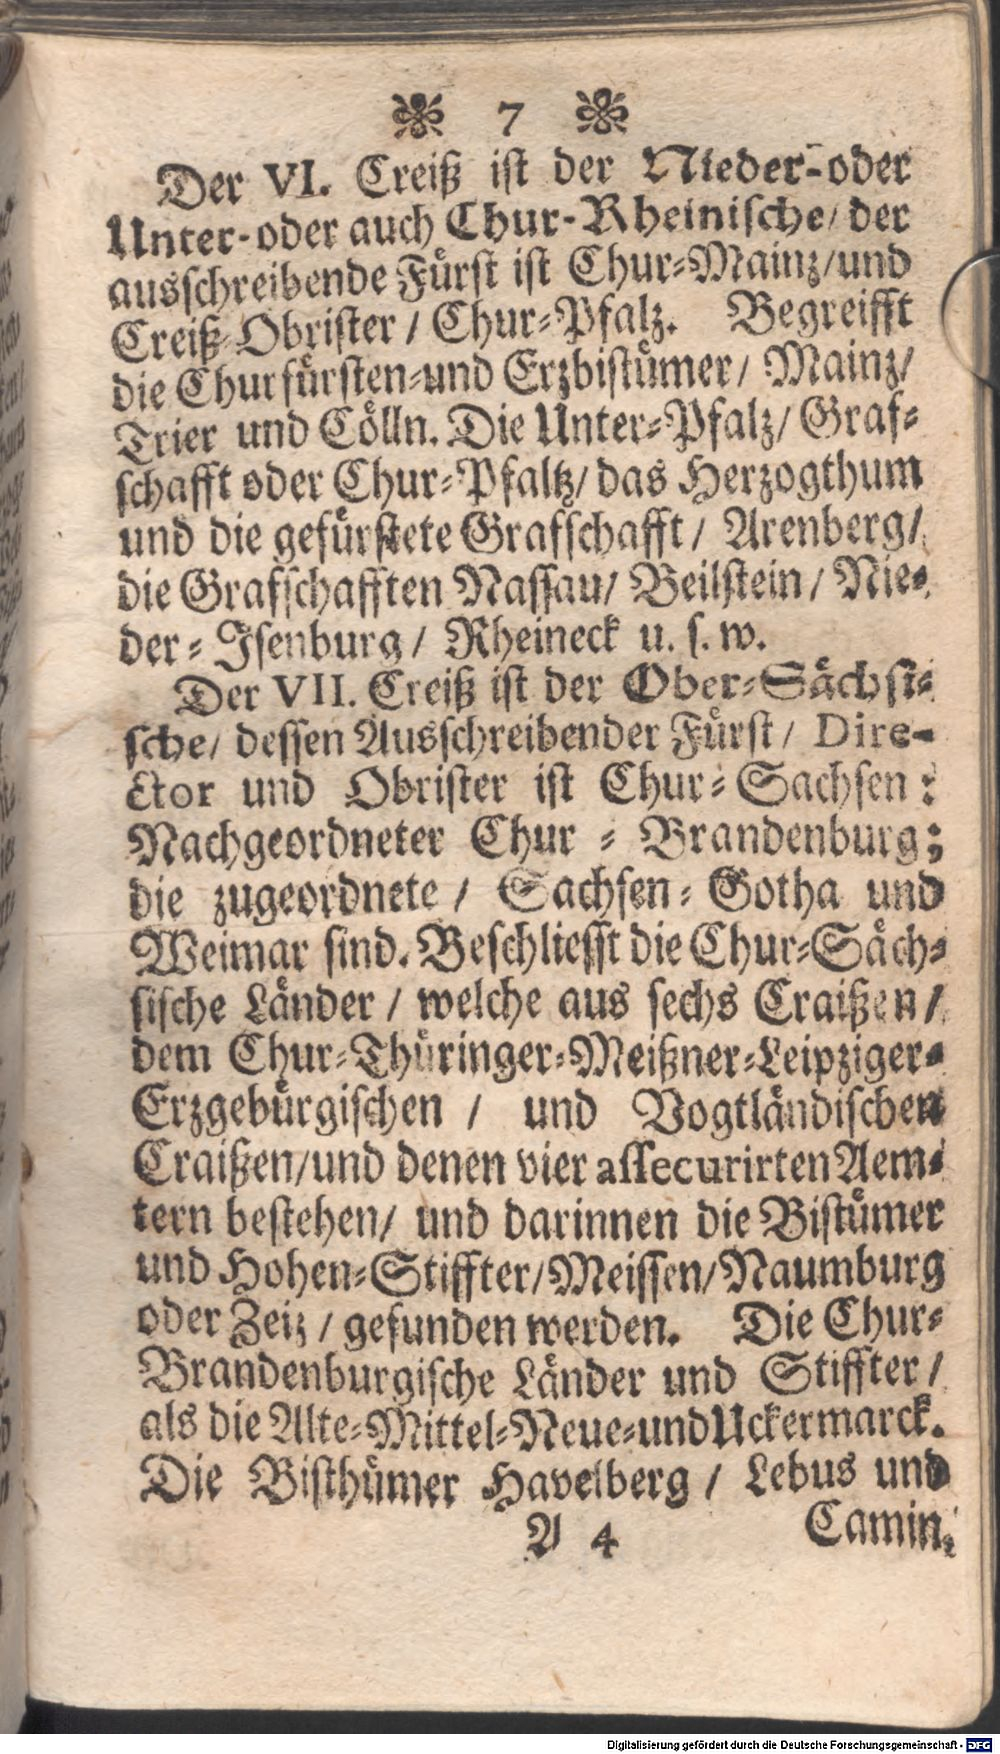 ❧ 7 ❧
Der VI. Creiß ist der Nieder-oder
Unter-oder auch Chur-Rheinische/ der
ausschreibende Fürst ist Chur-Mainz/und
Creiß-Obrister / Chur-Pfalz. Begreifft
die Churfürsten-und Erzbistümer/ Mainz/
Trier und Cölln. Die Unter-Pfalz/ Graf-
schafft oder Chur-Pfaltz/ das Herzogthum
und die gefürstete Grafschafft / Arenberg/
die Grafschafften Nassau/ Beilstein / Nie-
der-Isenburg / Rheineck u. s. w.
Der VII. Creiß ist der Ober-Sächsi-
sche/ dessen Ausschreibender Fürst / Dire-
ctor und Obrister ist Chur-Sachsen:
Nachgeordneter Chur-Brandenburg;
die zugeordnete / Sachsen-Gotha und
Weimar sind. Beschliesst die Chur-Säch-
sische Länder / welche aus sechs Craißen /
dem Chur-Thüringer-Meißner-Leipziger-
Erzgebürgischen / und Vogtländischen
Craißen/und denen vier assecurirten Aem-
tern bestehen/ und darinnen die Bistümer
und Hohen-Stiffter/Meissen/Naumburg
oder Zeiz / gefunden werden. Die Chur-
Brandenburgische Länder und Stiffter /
als die Alte-Mittel-Neue-und Uckermarck.
Die Bisthümer Havelberg / Lebus und
A 4 Camin.
Digitalisierung gefördert durch die Deutsche Forschungsgemeinschaft - DFG